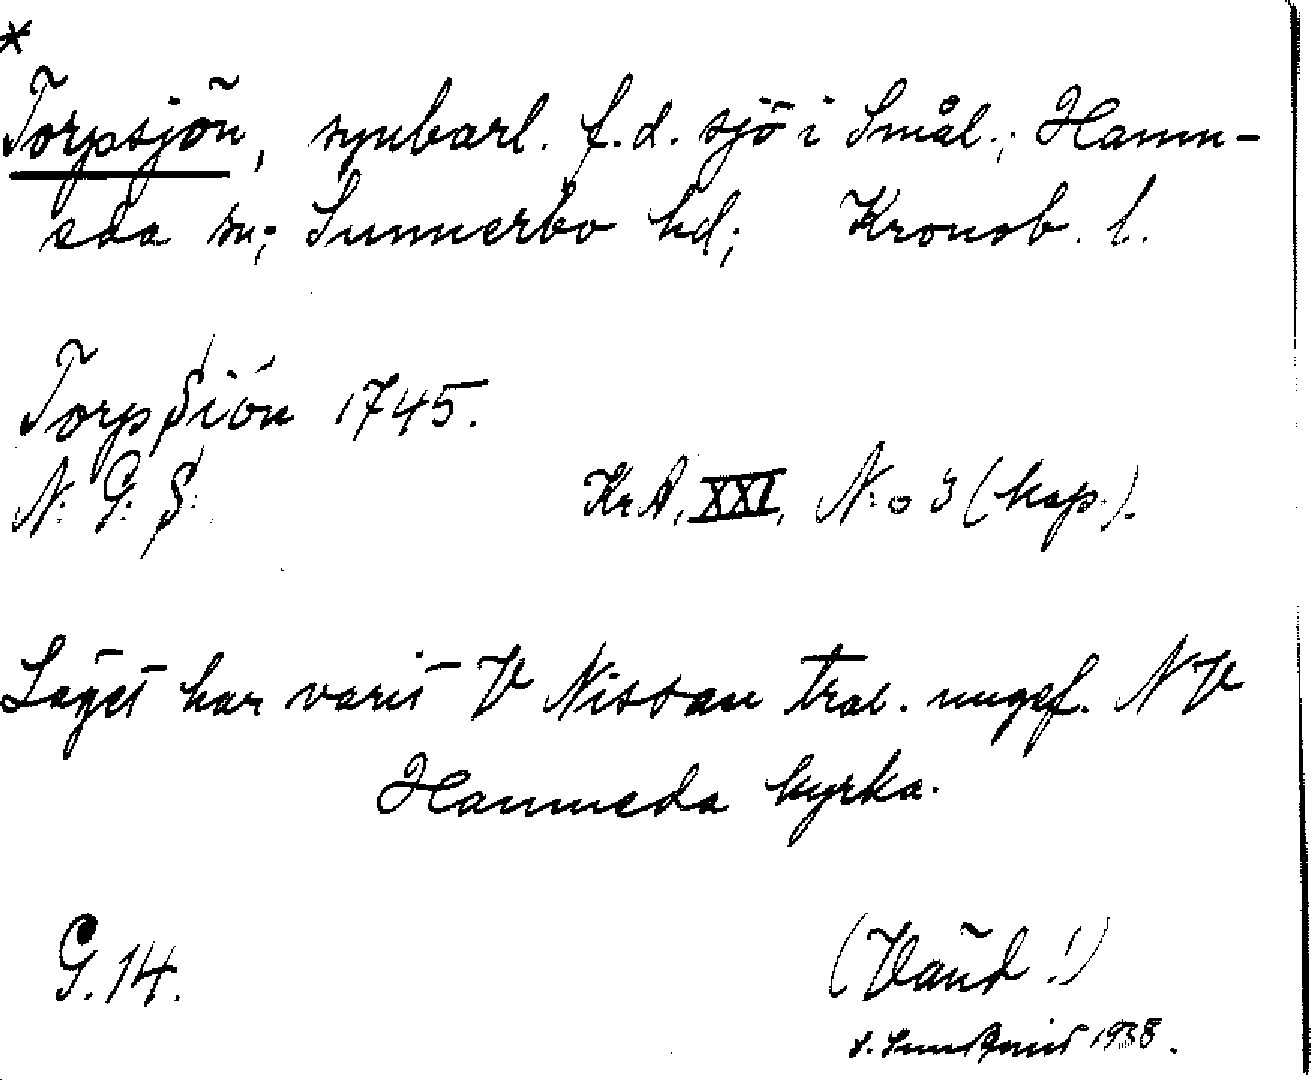 *
Torpsjön, synbarl. f.d. sjö i Smål.; Hamn-
eda sn; Sunnerbo hd; Kronob. l.
Torpsiön 1745.
N: G: S: KrA, XXI, N:o 3 (kop.).
Läget har varit V Nissan tral. ungef. NV
Hamneda kyrka.
G. 14. (Vänd!)
1938.